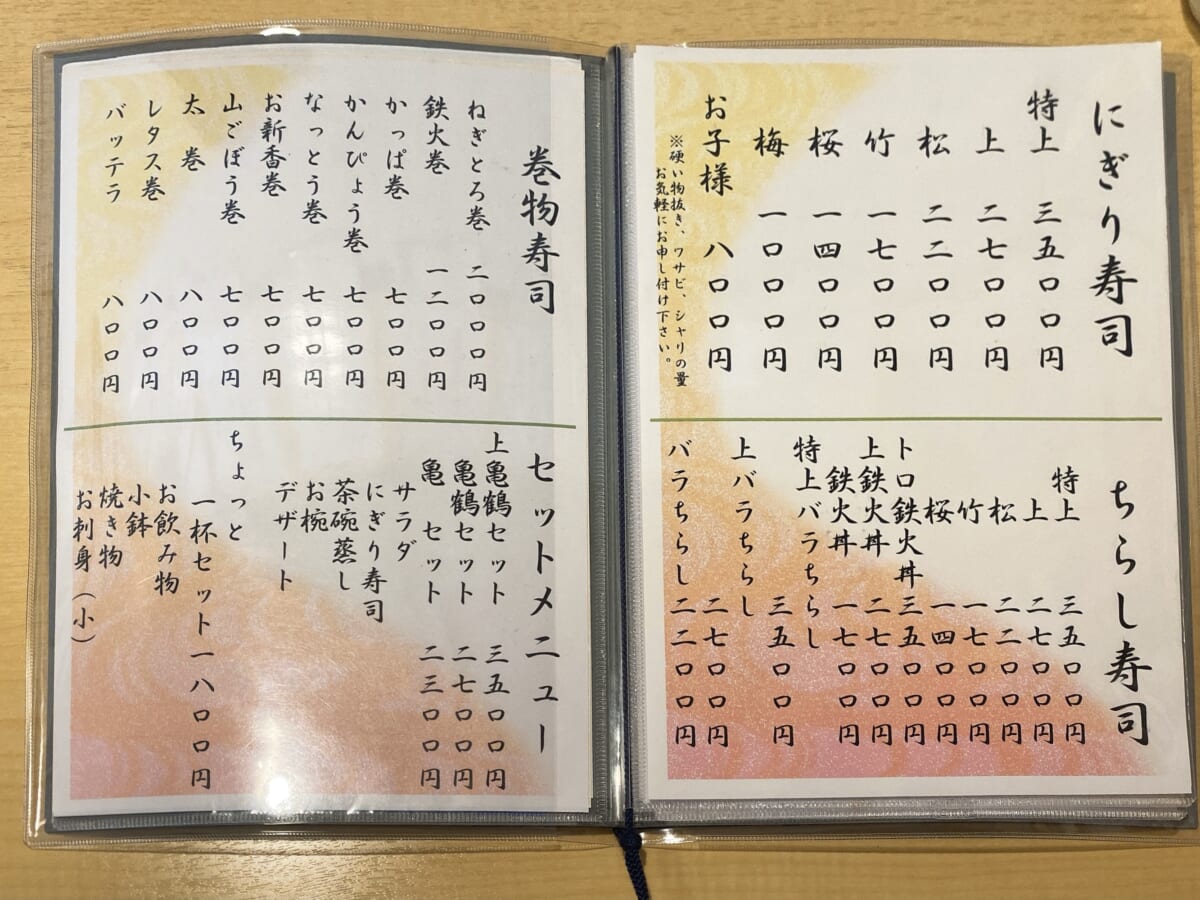 にぎり寿司
特上 三五〇〇円
上 二七〇〇円
松 二二〇〇円
竹 一七〇〇円
桜 一四〇〇円
梅 一〇〇〇円
お子様 八〇〇円
※硬い物抜き、ワサビ、シャリの量
お気軽にお申し付け下さい。
ちらし寿司
特上 三五〇〇円
上 二七〇〇円
松 二二〇〇円
竹 一七〇〇円
桜 一四〇〇円
トロ鉄火丼 三五〇〇円
上鉄火丼 二七〇〇円
鉄火丼 一七〇〇円
特上バラちらし 三五〇〇円
上バラちらし 二七〇〇円
バラちらし 二二〇〇円
巻物寿司
ねぎとろ巻 二〇〇〇円
鉄火巻 一二〇〇円
かっぱ巻 七〇〇円
かんぴょう巻 七〇〇円
なっとう巻 七〇〇円
お新香巻 七〇〇円
山ごぼう巻 七〇〇円
太巻 八〇〇円
レタス巻 八〇〇円
バッテラ 八〇〇円
セットメニュー
上亀鶴セット 三五〇〇円
亀鶴セット 二七〇〇円
亀セット 二三〇〇円
サラダ
にぎり寿司
茶碗蒸し
お椀
デザート
ちょっと
一杯セット 一八〇〇円
お飲み物
小鉢
焼き物
お刺身（小）